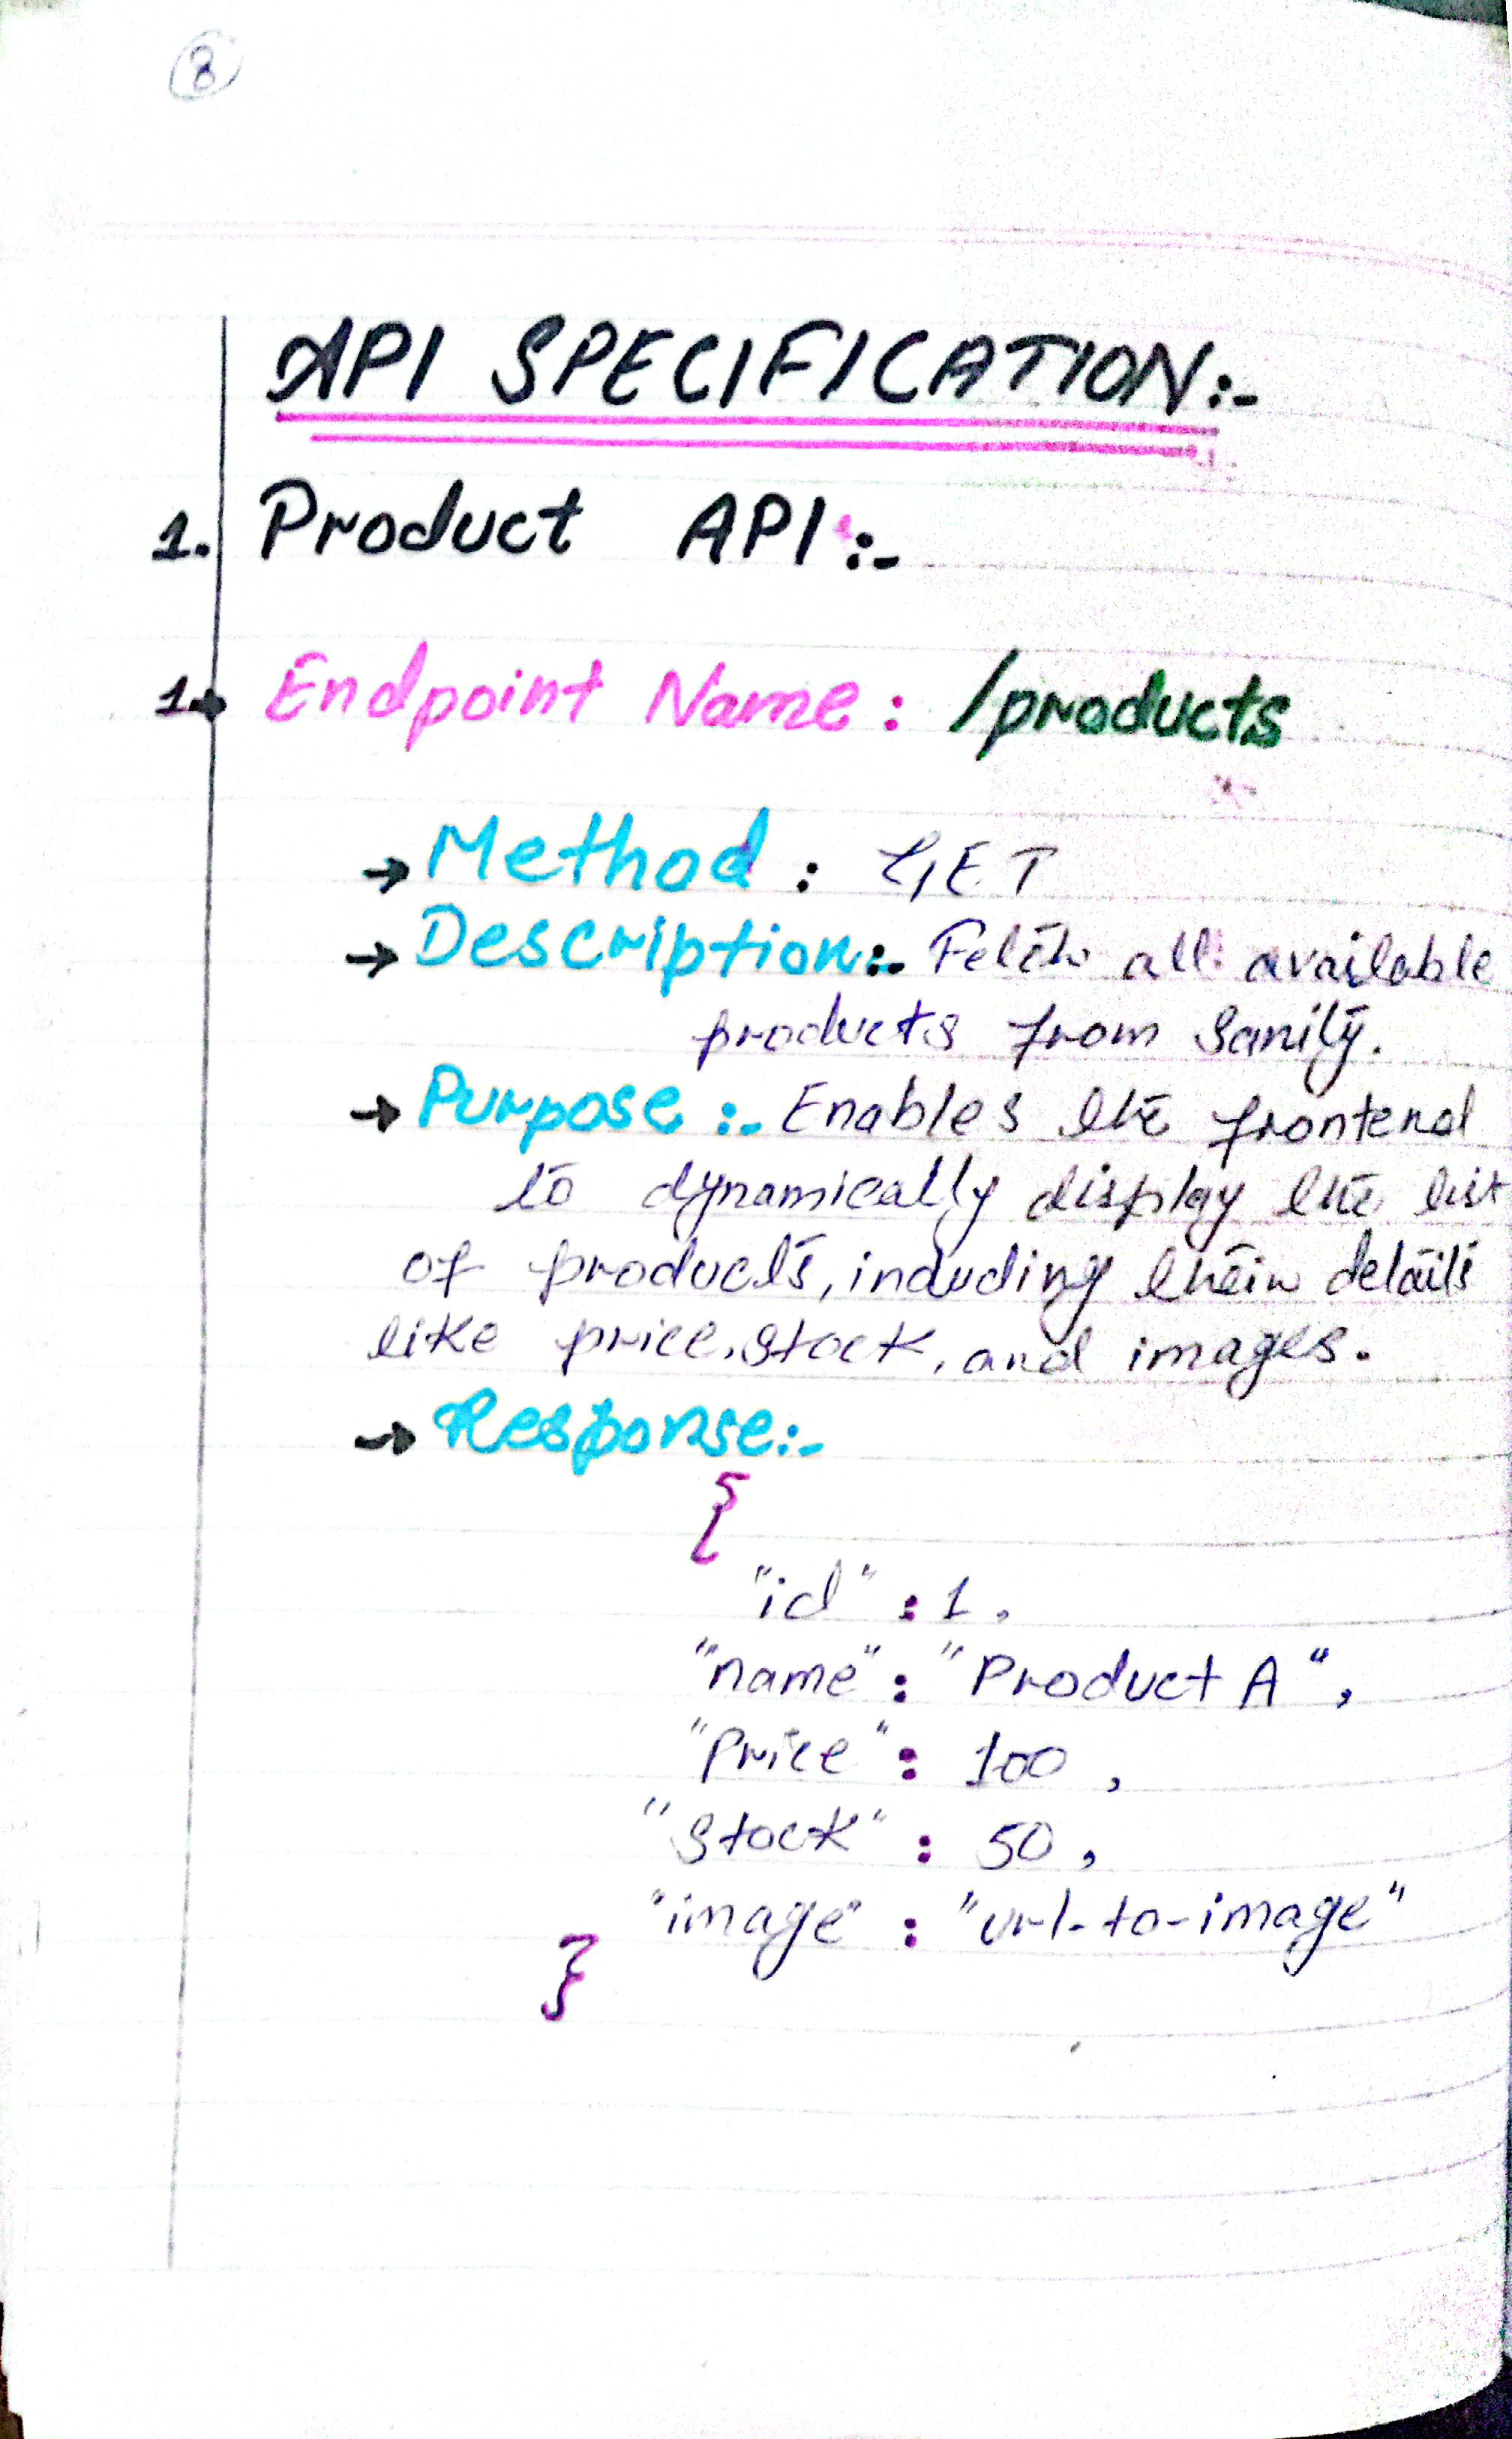 8
API SPECIFICATION:-
1. Product API:-
1. Endpoint Name: /products
→ Method: GET
→ Description:- Fetch all available
products from Sanity.
→ Purpose:- Enables the frontend
to dynamically display the list
of products, including their details
like price, stock, and images.
→ Response:-
{
"id": 1,
"name": "Product A",
"Price": 100,
"Stock": 50,
"image": "url-to-image"
}